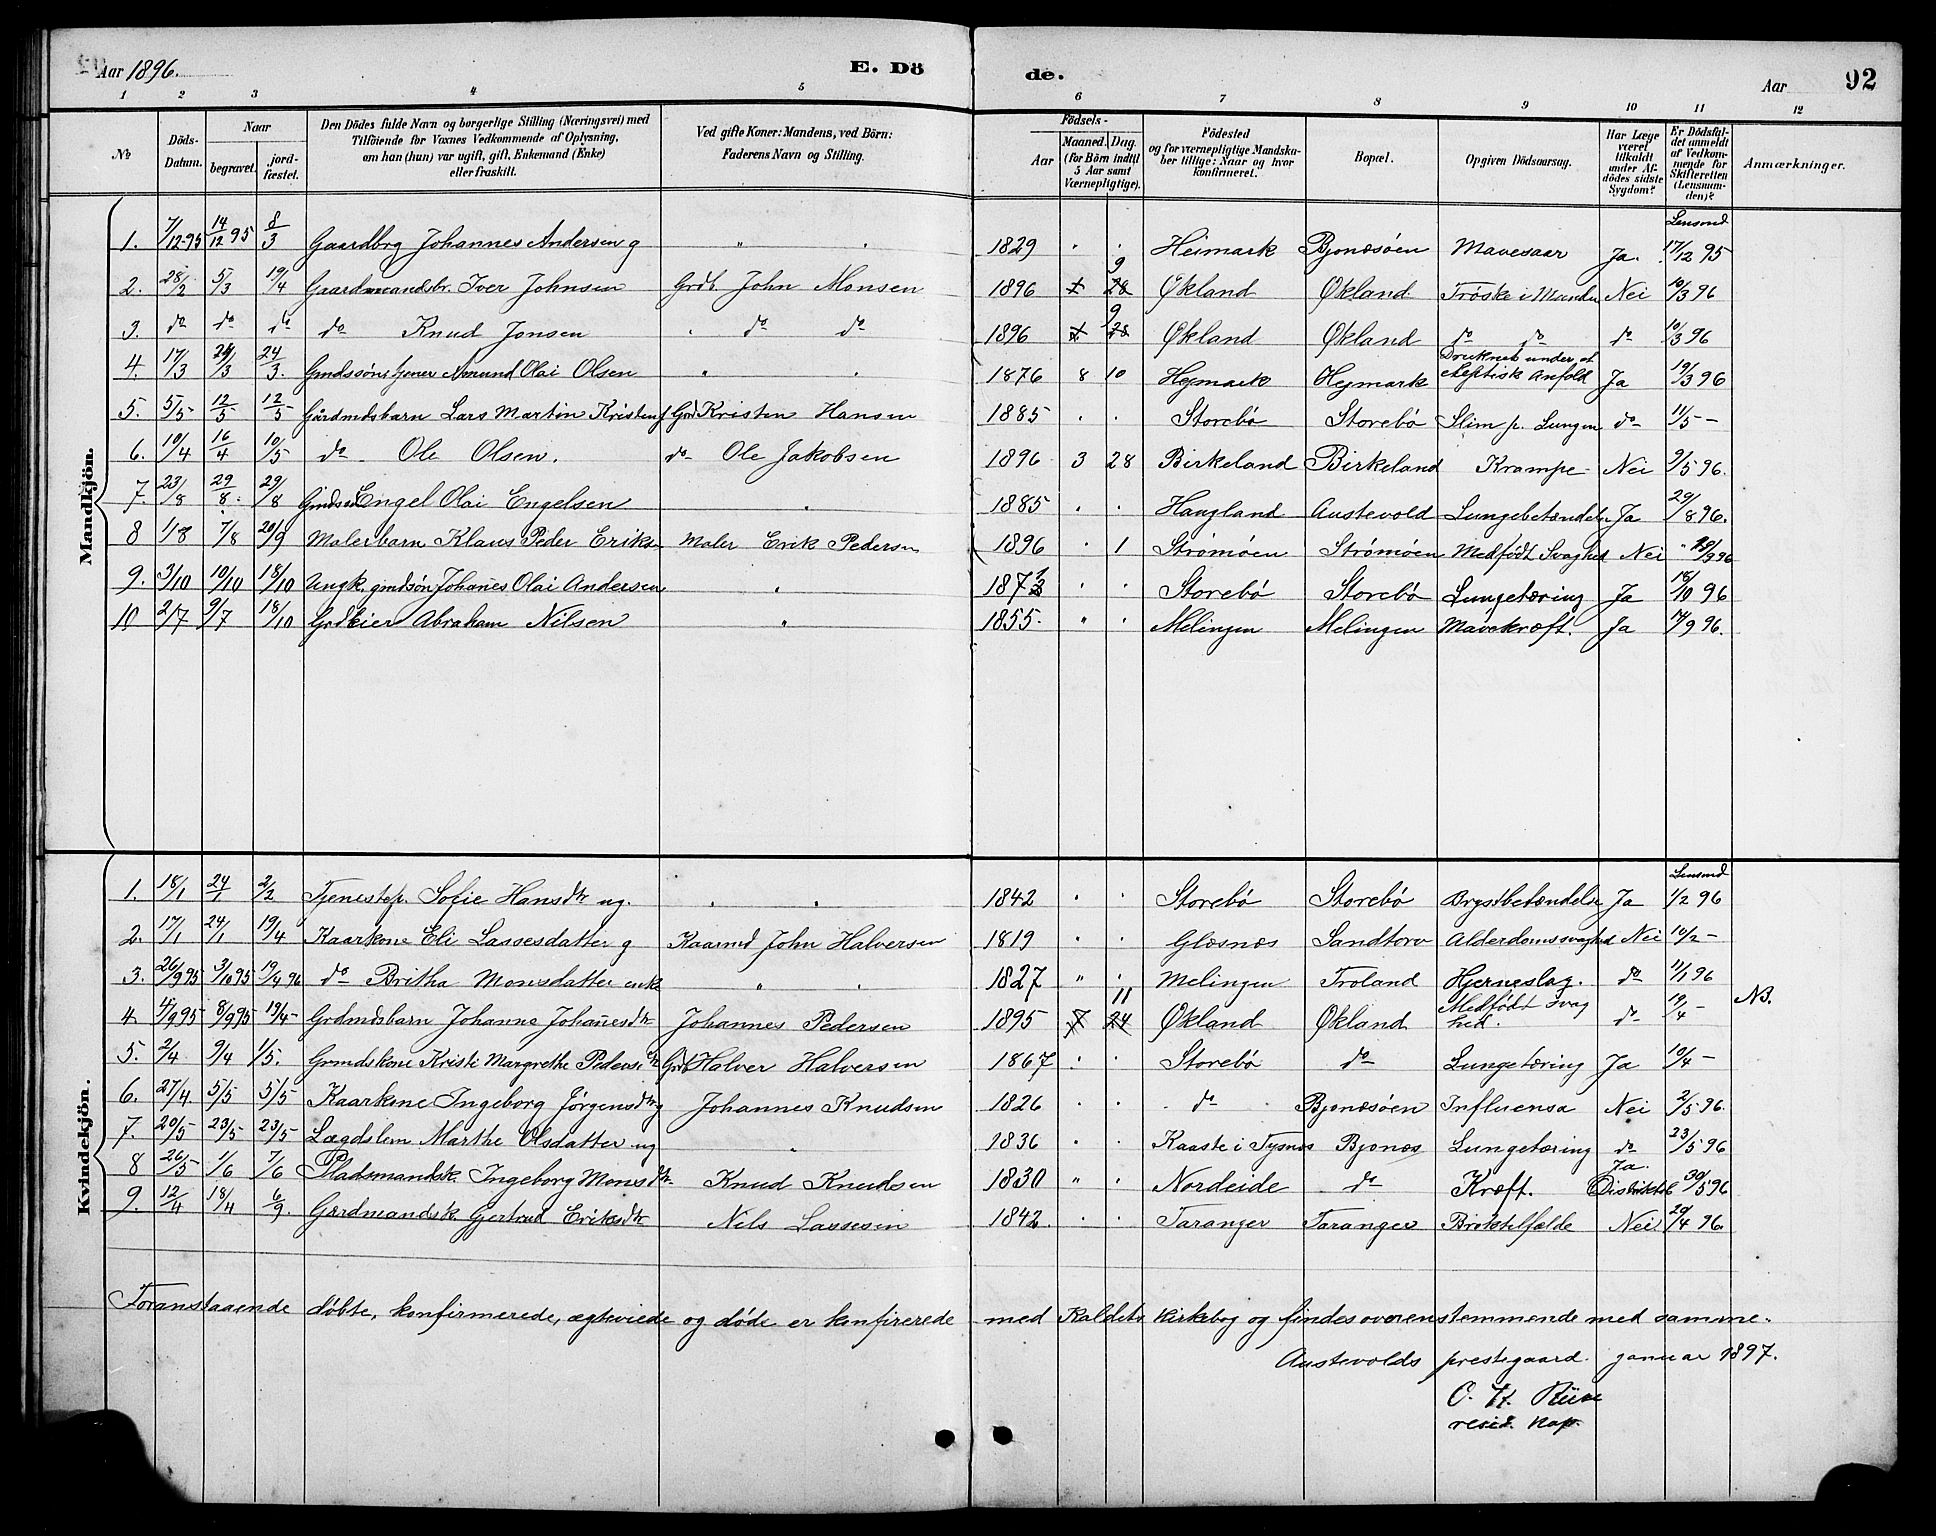 Aar 1896. E. Dö de. Aar 92
1 2 3 4 5 6 7 8 9 10 11 12
No Döds-Datum. Naar begravet. jordfæstet. Den Dödes fulde Navn og borgerlige Stilling (Næringsvei) med Tilföiende for Voxnes Vedkommende af Oplysning, om han (hun) var ugift, gift, Enkemand (Enke) eller fraskilt. Ved gifte Koner: Mandens, ved Börn: Faderens Navn og Stilling. Födsels- Aar Maaned. Dag. (for Börn indtil 5 Aar samt Værnepligtige). Födested og for værnepligtige Mandskaber tillige: Naar og hvor konfirmeret. Bopæl. Opgiven Dödsaarsag. Har Læge været tilkaldt under Afdödes sidste Sygdom? Er Dödsfaldet anmeldt af Vedkommende for Skifteretten (Lensmanden)? Anmærkninger.
Mandkjön.
Lensmd
1. 7/12-95 14/12 95 8/3 Gaardbrg Johannes Andersen g " " 1829 " " Heimark Bjonesøen Mavesaar Ja. 17/12 95
2. 28/2 5/3 19/4 Gaardmandsbr. Iver Johnsen Grdb. John Monsen 1896 1 28 9 Økland Økland Trøske i Munden Nei 10/3 96
3. do do do do Knud Jonsen " do do 1896 1 28 9 Økland Økland do do do 10/3 96
4. 17/3 24/3 24/3. Gmdssøn tjener Amund Olai Olsen " " 1876 8 10 Hejmark Hejmark Druknet under et epileptisk Anfald Ja 19/3 96
5. 5/5 12/5 12/5 Gårdmdsbarn Lars Martin Kristens Grd. Kristen Hansen 1885 " " Storebø Storebø Slim p. Lungen do 11/5 -
6. 10/4 16/4 10/5 do Ole Olsen. do Ole Jakobsen 1896 3 28 Birkeland Birkeland Krampe Nei 9/5 96.
7. 23/8 29/8. 29/8 Gmdssøn Engel Olai Engelsen " 1885 " " Haugland Austevold Lungebetændelse Ja 29/8 96.
8 1/8 7/8 20/9 Malerbarn Klaus Peder Eriksen Maler Erik Pedersen 1896 " 1 Strømøen Strømøen Medfødt Svaghed Nei 19/9 96
9. 3/10 10/10 18/10 Ungk. gmdsøn Johanes Olai Andersen " 1873 " " Storebø Storebø Lungetæring Ja 18/10 96
10 2/7 9/7 18/10 Grdeier Abraham Nilsen " 1855. " " Melingen Melingen Mavekræft. Ja 14/9 96.
Kvindekjön.
Lensmd
1. 18/1 24/1 2/2 Tjenestep. Sofie Hansdtr ug. " " 1842 " " Storebø Storebø Brystbetændelse Ja 1/2 96
2. 17/1 24/1 19/4 Kaarkone Eli Lassesdatter g Kaarmd John Halversen 1819 " " Glæsnæs Sandtorv Alderdomssvaghed Nei 10/2 -
3. 26/9 95 3/10 95 19/4 96 do Britha Monsdatter enke " " 1827 " " Melingen Troland Hjerneslag. do 11/1 96
4 4/9 95 8/9 95 19/4 - Grdmdsbarn Johanne Johanesdtr Johannes Pedersen 1895 7 24 11 Økland Økland Medfødt svaghed. do 19/4 - NB.
5. 2/4 9/4 1/5. Grmdskone Kristi Margrethe Pedersdtr Grdb Halver Halversen 1867 " " Storebø do Lungetæring Ja 10/4 -
6. 27/4 5/5 5/5 Kaarkone Ingeborg Jørgensdtr g Johannes Knudsen 1826 " " do Bjonesøen Influensa Nei 2/5 96.
7. 20/5 23/5 23/5 Lægdslem Marthe Olsdatter ug " 1836 " " Kaaste i Tysnes Bjones Lungetæring do 23/5 96
8 26/5 1/6 7/6 Pladsmandsk. Ingeborg Monsdtr Knud Knudsen 1830 " " Nordeide do Kræft. Ja. Distriktsl 30/5 96
9. 12/4 18/4 6/9. Gardmandsk. Gjertrud Eriksdtr Nels Lassesen 1842. " " Taranger Taranger Broktilfælde Nei. 29/4 96.
Foranstaaende døbte, konfirmerede, ægteviede og døde er konfirerede med Kaldets Kirkebog og findes overenstemmende med samme.
Austevolds prestegaard. januar 1897.
O. H.
resid. Kap.